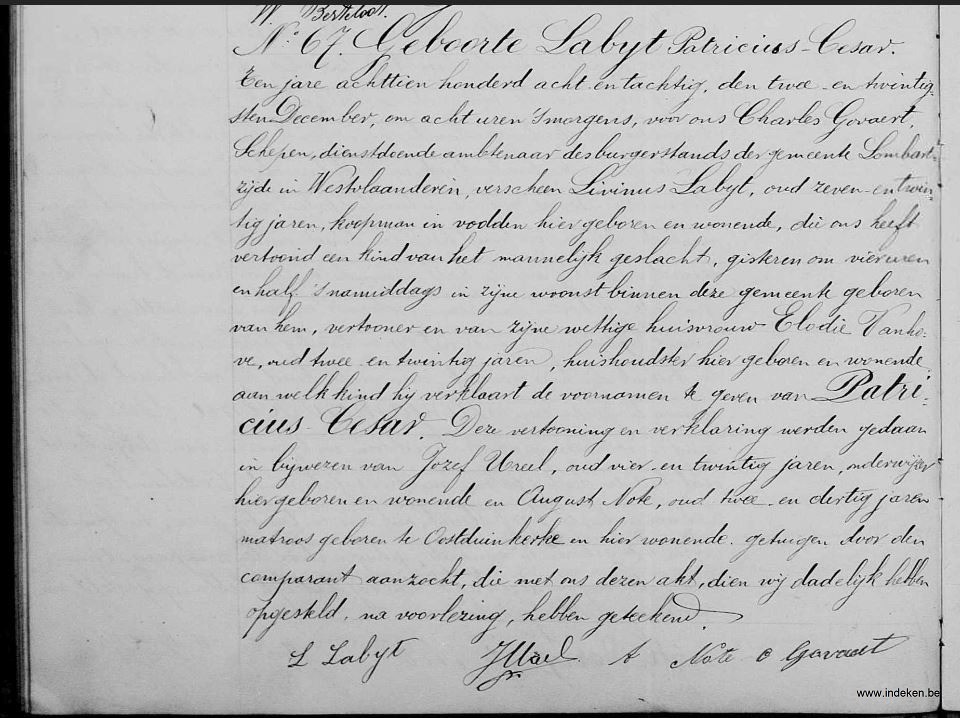 W. Berteloot.
N.º 67. Geboorte Labyt Patricius-Cesar.
Ten jare achttien honderd acht-en tachtig, den twee-en-twintig-
sten December, om acht uren 's morgens, voor ons Charles Govaert,
Schepen, dienstdoende ambtenaar des burgerstands der gemeente Lombart-
zijde in Westvlaanderen, verscheen Livinus Labyt, oud zeven-en twin-
tig jaren, koopman in vodden hier geboren en wonende, die ons heeft
vertoond een kind van het mannelijk geslacht, gisteren om vier uren
en half 's namiddags in zijne woonst binnen deze gemeente geboren
van hem, vertooner en van zijne wettige huisvrouw Elodie Vanho-
ve, oud twee-en twintig jaren, huishoudster hier geboren en wonende
aan welk kind hij verklaart de voornamen te geven van Patri-
cius-Cesar. Deze vertooning en verklaring werden gedaan
in bijwezen van Jozef Ureel, oud vier-en twintig jaren, onderwijzer
hier geboren en wonende en August Note, oud twee-en dertig jaren
matroos geboren te Oostduinkerke en hier wonende. getuigen door den
comparant aanzocht, die met ons dezen akt, dien wij dadelijk hebben
opgesteld, na voorlezing, hebben geteekend.
L Labyt JUreel A Note C Govaert
www.indeken.be